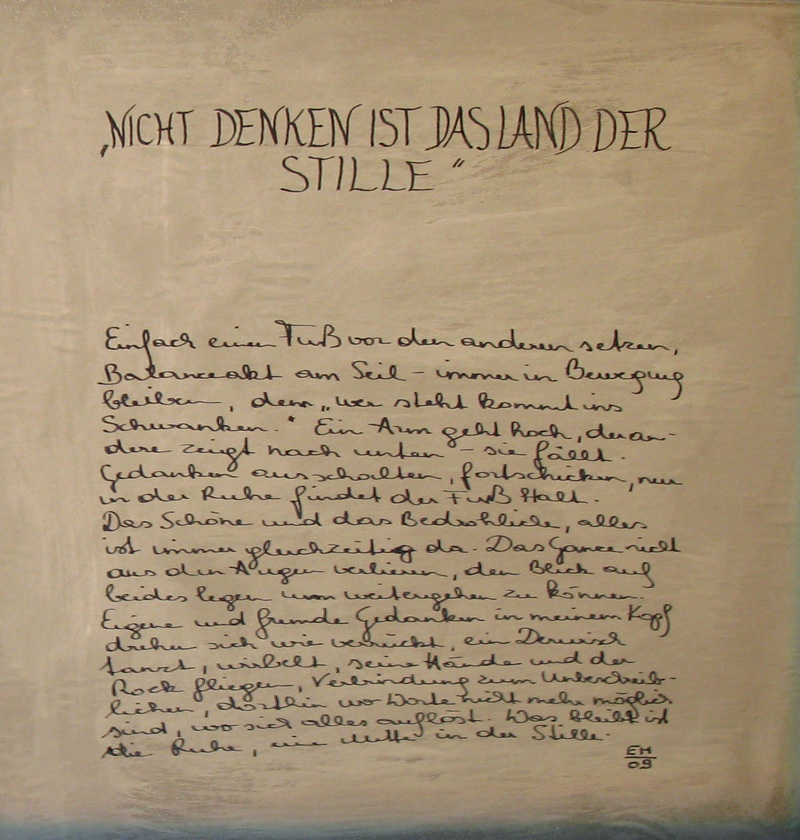 „NICHT DENKEN IST DAS LAND DER
STILLE“
Einfach einen Fuß vor den anderen setzen,
Balanceakt am Seil – immer in Bewegung
bleiben, denn „wer steht kommt ins
Schwanken.“ Ein Arm geht hoch, der an-
dere zeigt nach unten – sie fällt.
Gedanken ausschalten, fortschicken, nur
in der Ruhe findet der Fuß Halt.
Das Schöne und das Bedrohliche, alles
ist immer gleichzeitig da. Das Ganze nicht
aus den Augen verlieren, den Blick auf
beides legen um weitergehen zu können.
Eigene und fremde Gedanken in meinem Kopf
drehen sich wie verrückt, ein Derwisch
tanzt, wirbelt, seine Hände und der
Rock fliegen, Verbindung zum Unbeschreib-
lichen, dorthin wo Worte nicht mehr möglich
sind, wo sich alles auflöst. Was bleibt ist
die Ruhe, eine Mitte in der Stille.
EH
09